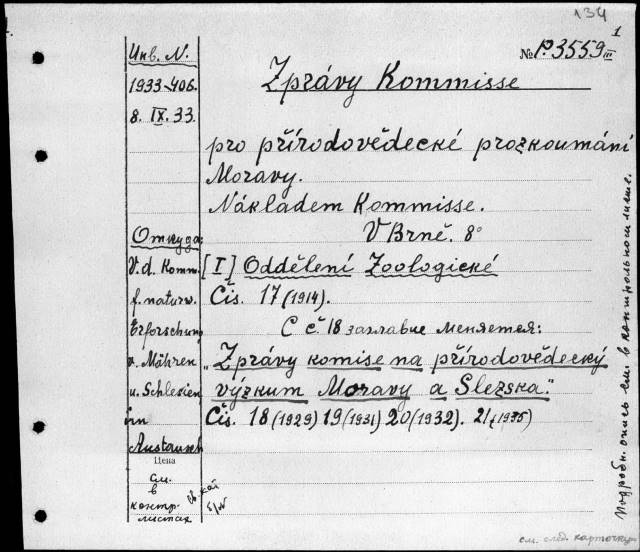 134
1
Инв. N.
№ P.3559 III
1933-406.
Zprávy Kommisse
8. IX. 33.
pro přírodovědecké prozkoumání
Moravy.
Nákladem Kommisse.
V Brně. 8°
Откуда
V. d. Komm. [I] Oddělení Zoologické
f. naturw. Čis. 17 (1914).
Erforschung С č. 18 заглавие меняется:
v. Mähren „Zprávy komise na přírodovědecký
u. Schlesien výzkum Moravy a Slezska."
im Čis. 18 (1929) 19 (1931) 20 (1932). 21 (1935)
Austausch
Цена
см.
в
контр.
листах
Подробн. опись см. в контрольном листе.
см. след. карточку